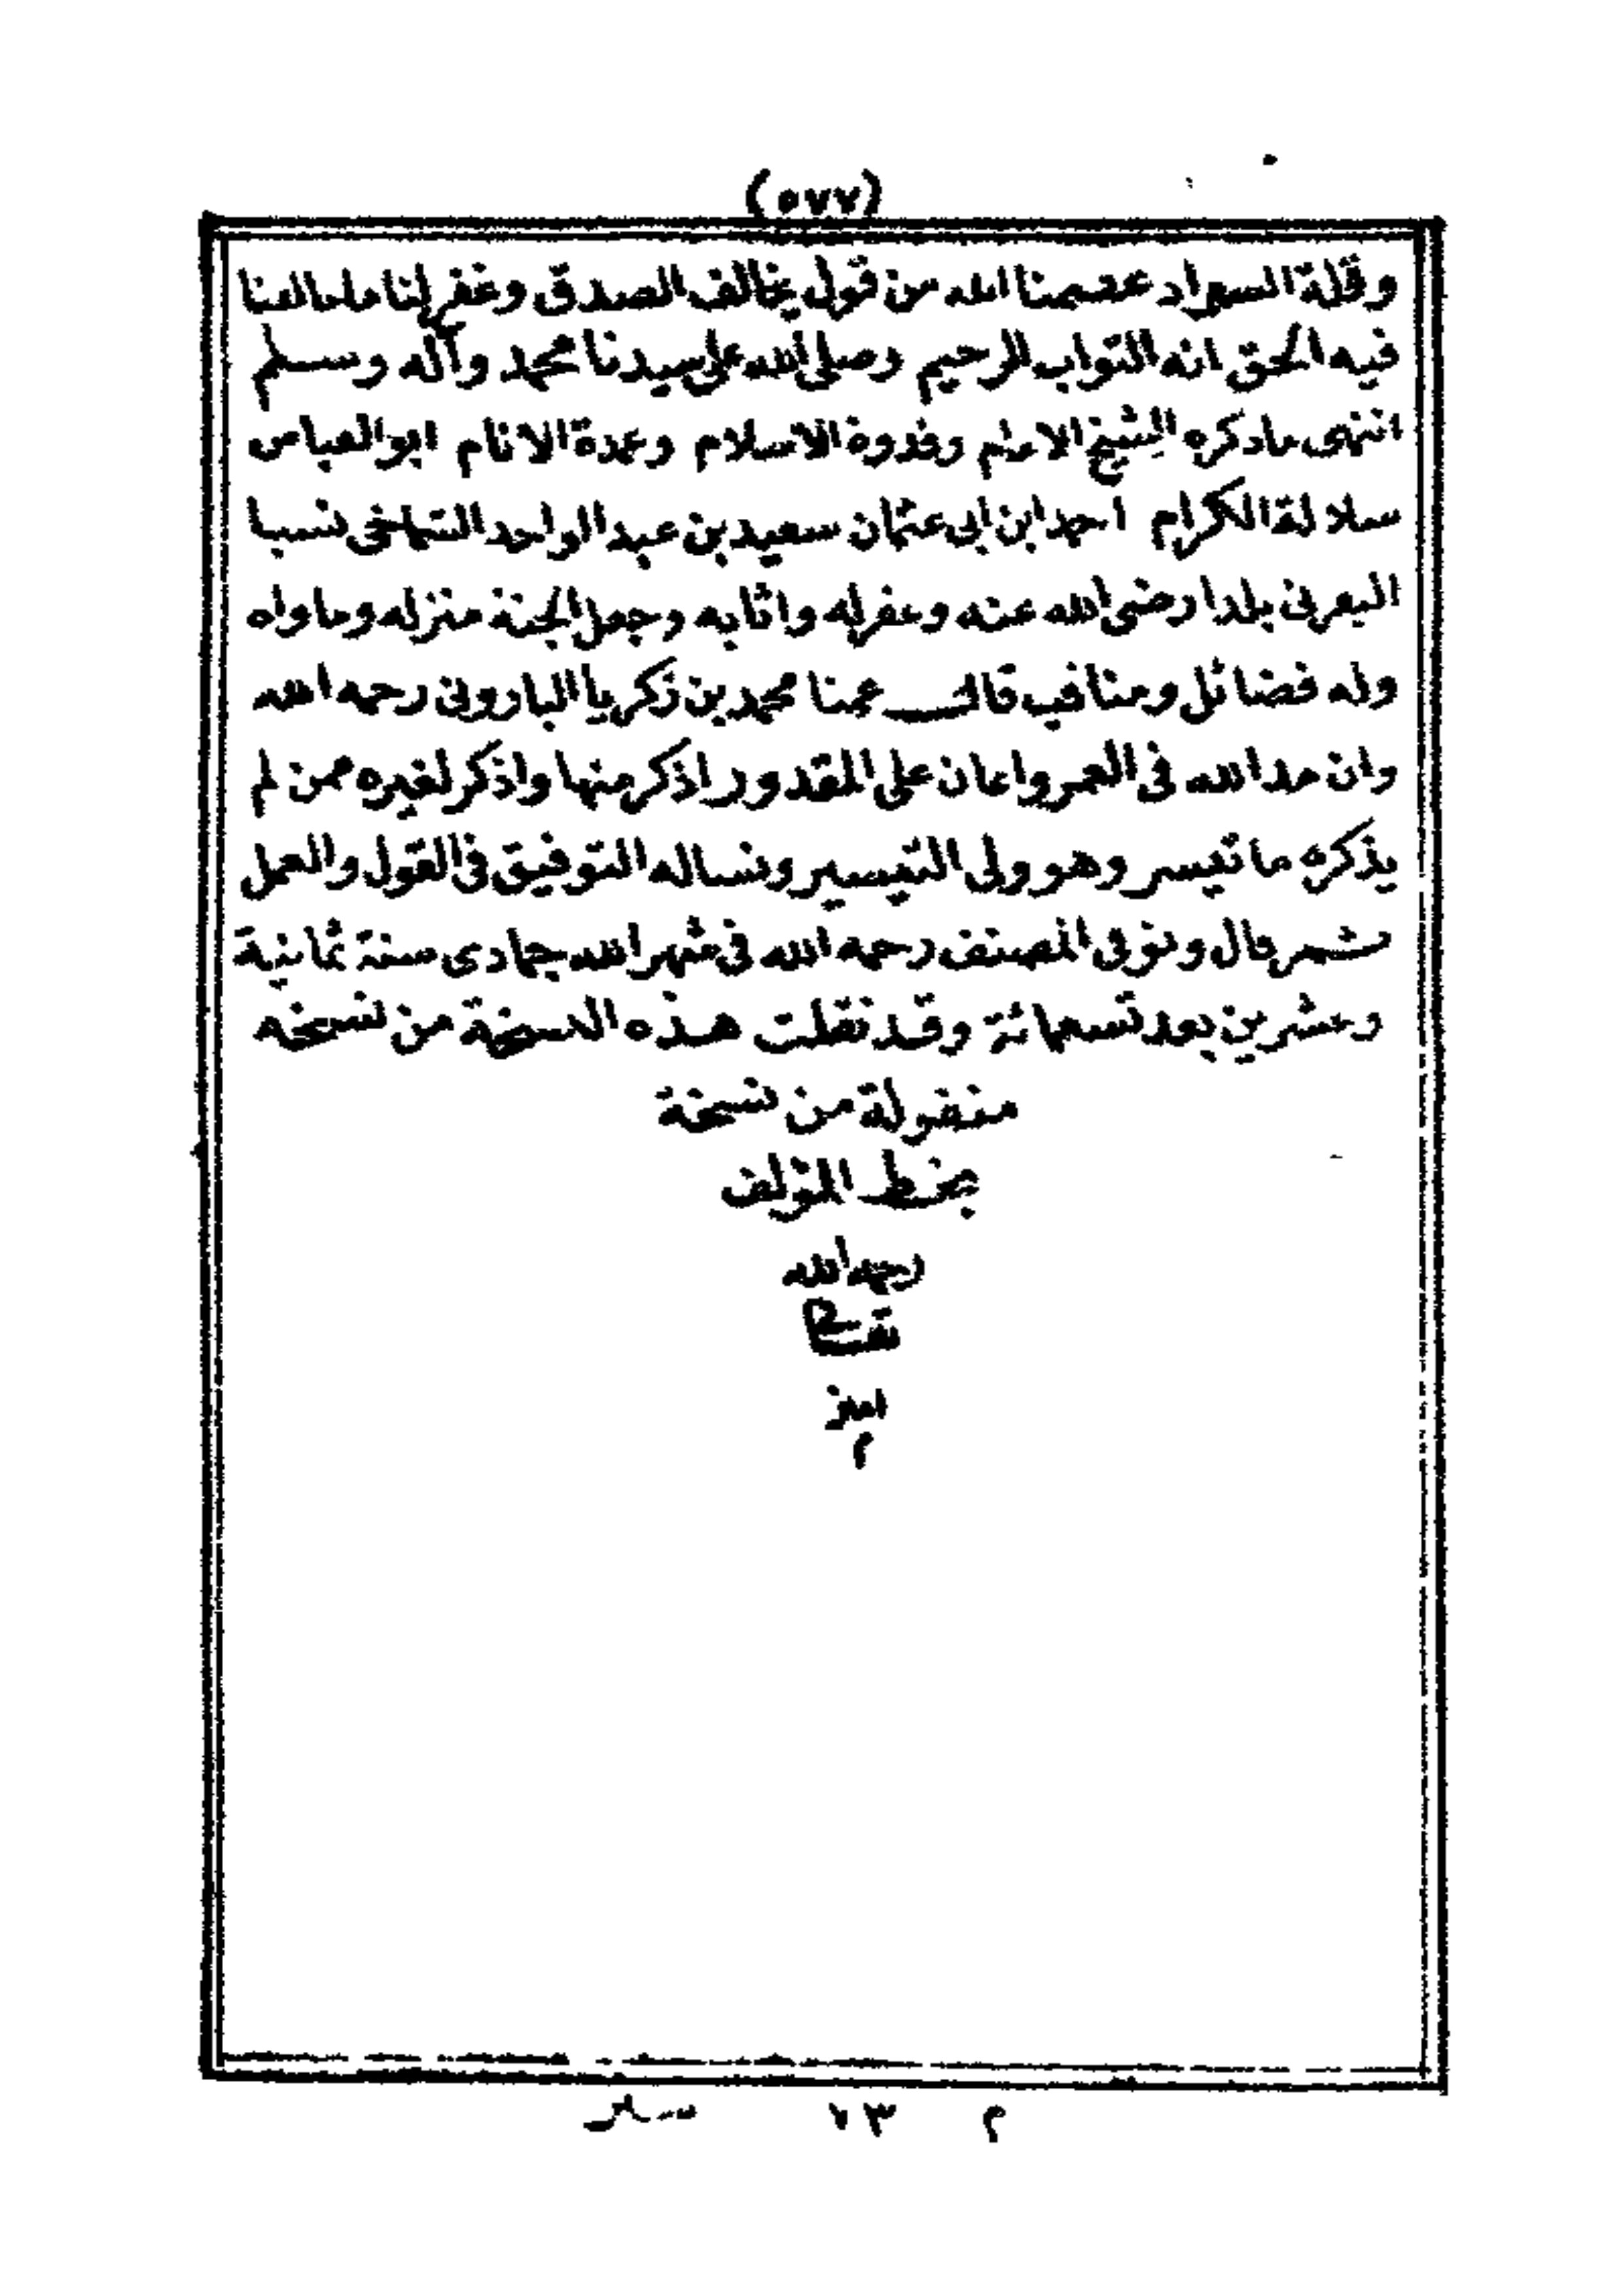 (٥٧٧)
وقلة السواد عصمنا الله من قول يخالف الصدق وغفر لنا ما خالفنا
فيه الحق انه التواب الرحيم وصلى الله على سيدنا محمد وآله وسلم
انتهى ما ذكره الشيخ الامام وقدوة الاسلام وعمدة الانام ابو العباس
سلالة الكرام احمد ابن ابى عثمان سعيد بن عبد الواحد الشماخى نسبا
اليفرنى بلدا رضى الله عنه وغفر له واثابه وجعل الجنة منزله وماواه
وله فضائل ومناقب قال عمنا محمد بن زكريا البارونى رحمه الله
وان مد الله فى العمر واعان على المقدور اذكر منها واذكر لغيره ممن لم
يذكره ما تيسر وهو ولى التيسير ونساله التوفيق فى القول والعمل
ثم قال وتوفى المصنف رحمه الله فى شهر الله جمادى سنة ثمانية
وعشرين بعد تسعمائة وقد نقلت هذه النسخة من نسخه
منقولة من نسخة
بخط المؤلف
رحمه الله
امين
م
م ٣٧ سير